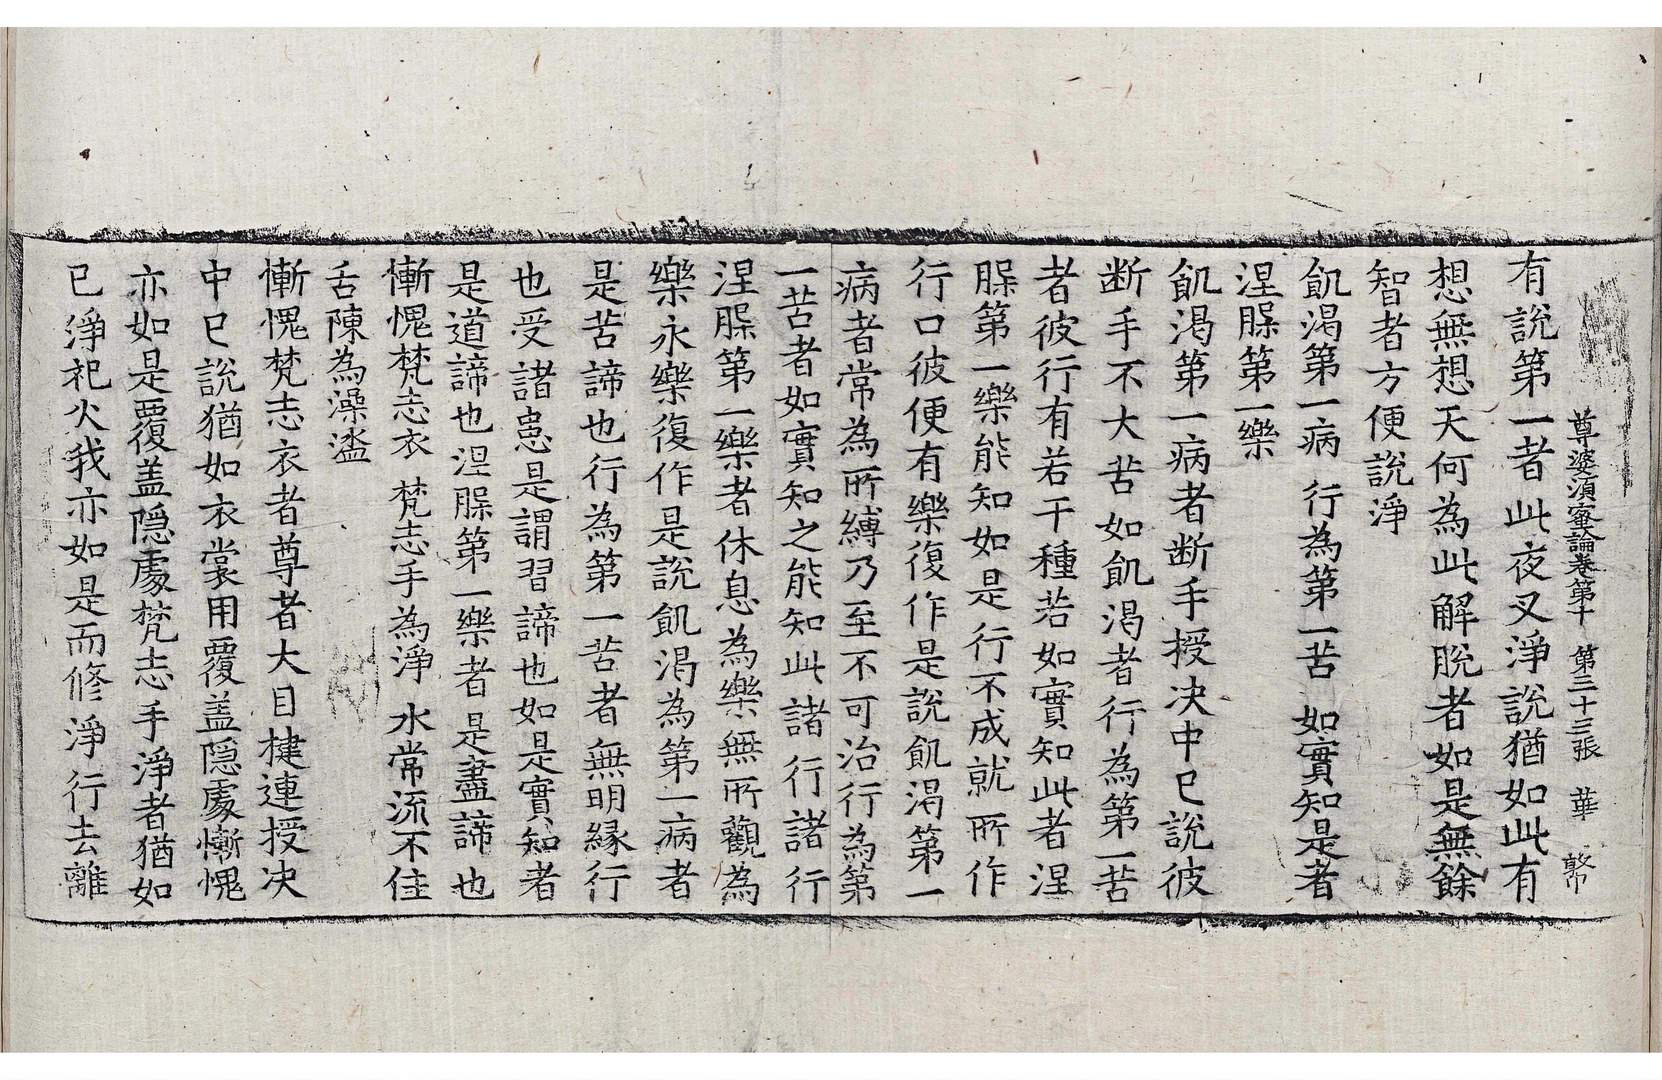 尊婆湏蜜論卷第十　第三十三張　華　幣
有說第一者此夜叉淨說猶如此有
想無想天何為此解脫者如是無餘
智者方便說淨
飢渴第一病　行為第一苦　如實知是者
涅𣨼第一樂
飢渴第一病者断手授决中已說彼
断手不大苦如飢渴者行為第一苦
者彼行有若干種若如實知此者涅
𣨼第一樂能知如是行不成就所作
行口彼便有樂復作是說飢渴第一
病者常為所縛乃至不可治行為第
一苦者如實知之能知此諸行諸行
涅𣨼第一樂者休息為樂無所觀為
樂永樂復作是說飢渴為第一病者
是苦諦也行為第一苦者無明緣行
也受諸患是謂習諦也如是實知者
是道諦也涅𣨼第一樂者是盡諦也
慚愧梵志衣　梵志手為淨　水常流不住
舌陳為澡盥
慚愧梵志衣者尊者大目揵連授决
中已說猶如衣裳用覆盖隱處慚愧
亦如是覆盖隱處梵志手淨者猶如
已淨祀火我亦如是而修淨行去離